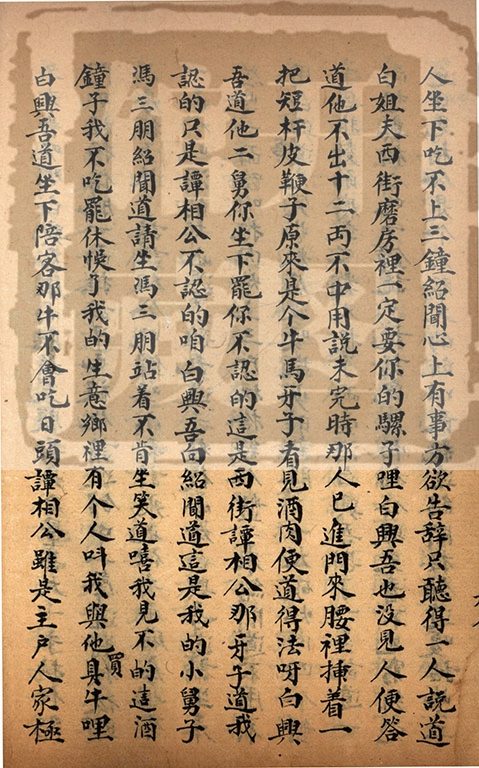 人坐下吃不上三鐘紹聞心上有事方欲告辞只聽得一人說道
白姐夫西街磨房裡一定要你的騾子哩白興吾也没見人便答
道他不出十二両不中用説未完時那人已進門來腰裡揷着一
把短杆皮鞭子原來是个牛馬牙子看見酒肉便道得法呀白興
吾道他二舅你坐下罷你不認的這是西街譚相公那牙子道我
認的只是譚相公不認的咱白興吾向紹聞道這是我的小舅子
馮三朋紹聞道請坐馮三朋站着不肯坐笑道嘻我見不的這酒
鐘子我不吃罷休悞了我的生意鄉裡有个人呌我與他買具牛哩
白興吾道坐下陪客那牛不會吃日頭譚相公雖是主戶人家極